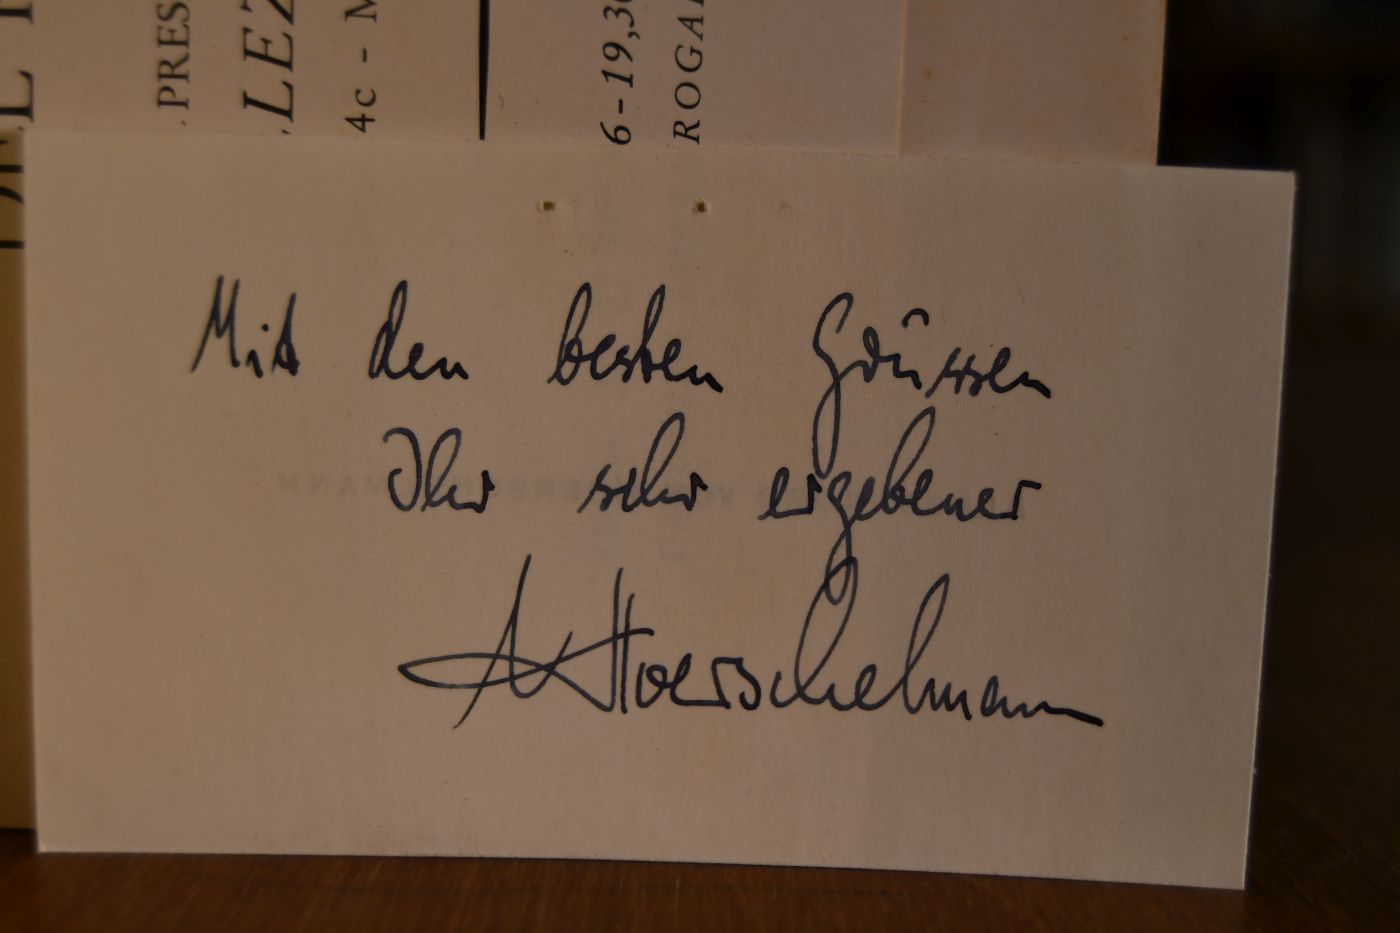 Mit den besten Grüssen
Ihr sehr ergebener
Hoerschelmann
PRES
LEZ
4c - M
6-19,30
ROGA